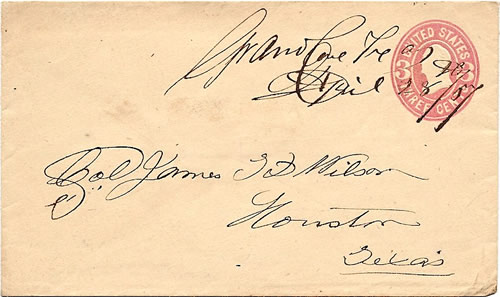 Grand Cane Tex
April 28 /57
UNITED STATES
THREE CENTS
Col James T D Wilson
Houston
Texas